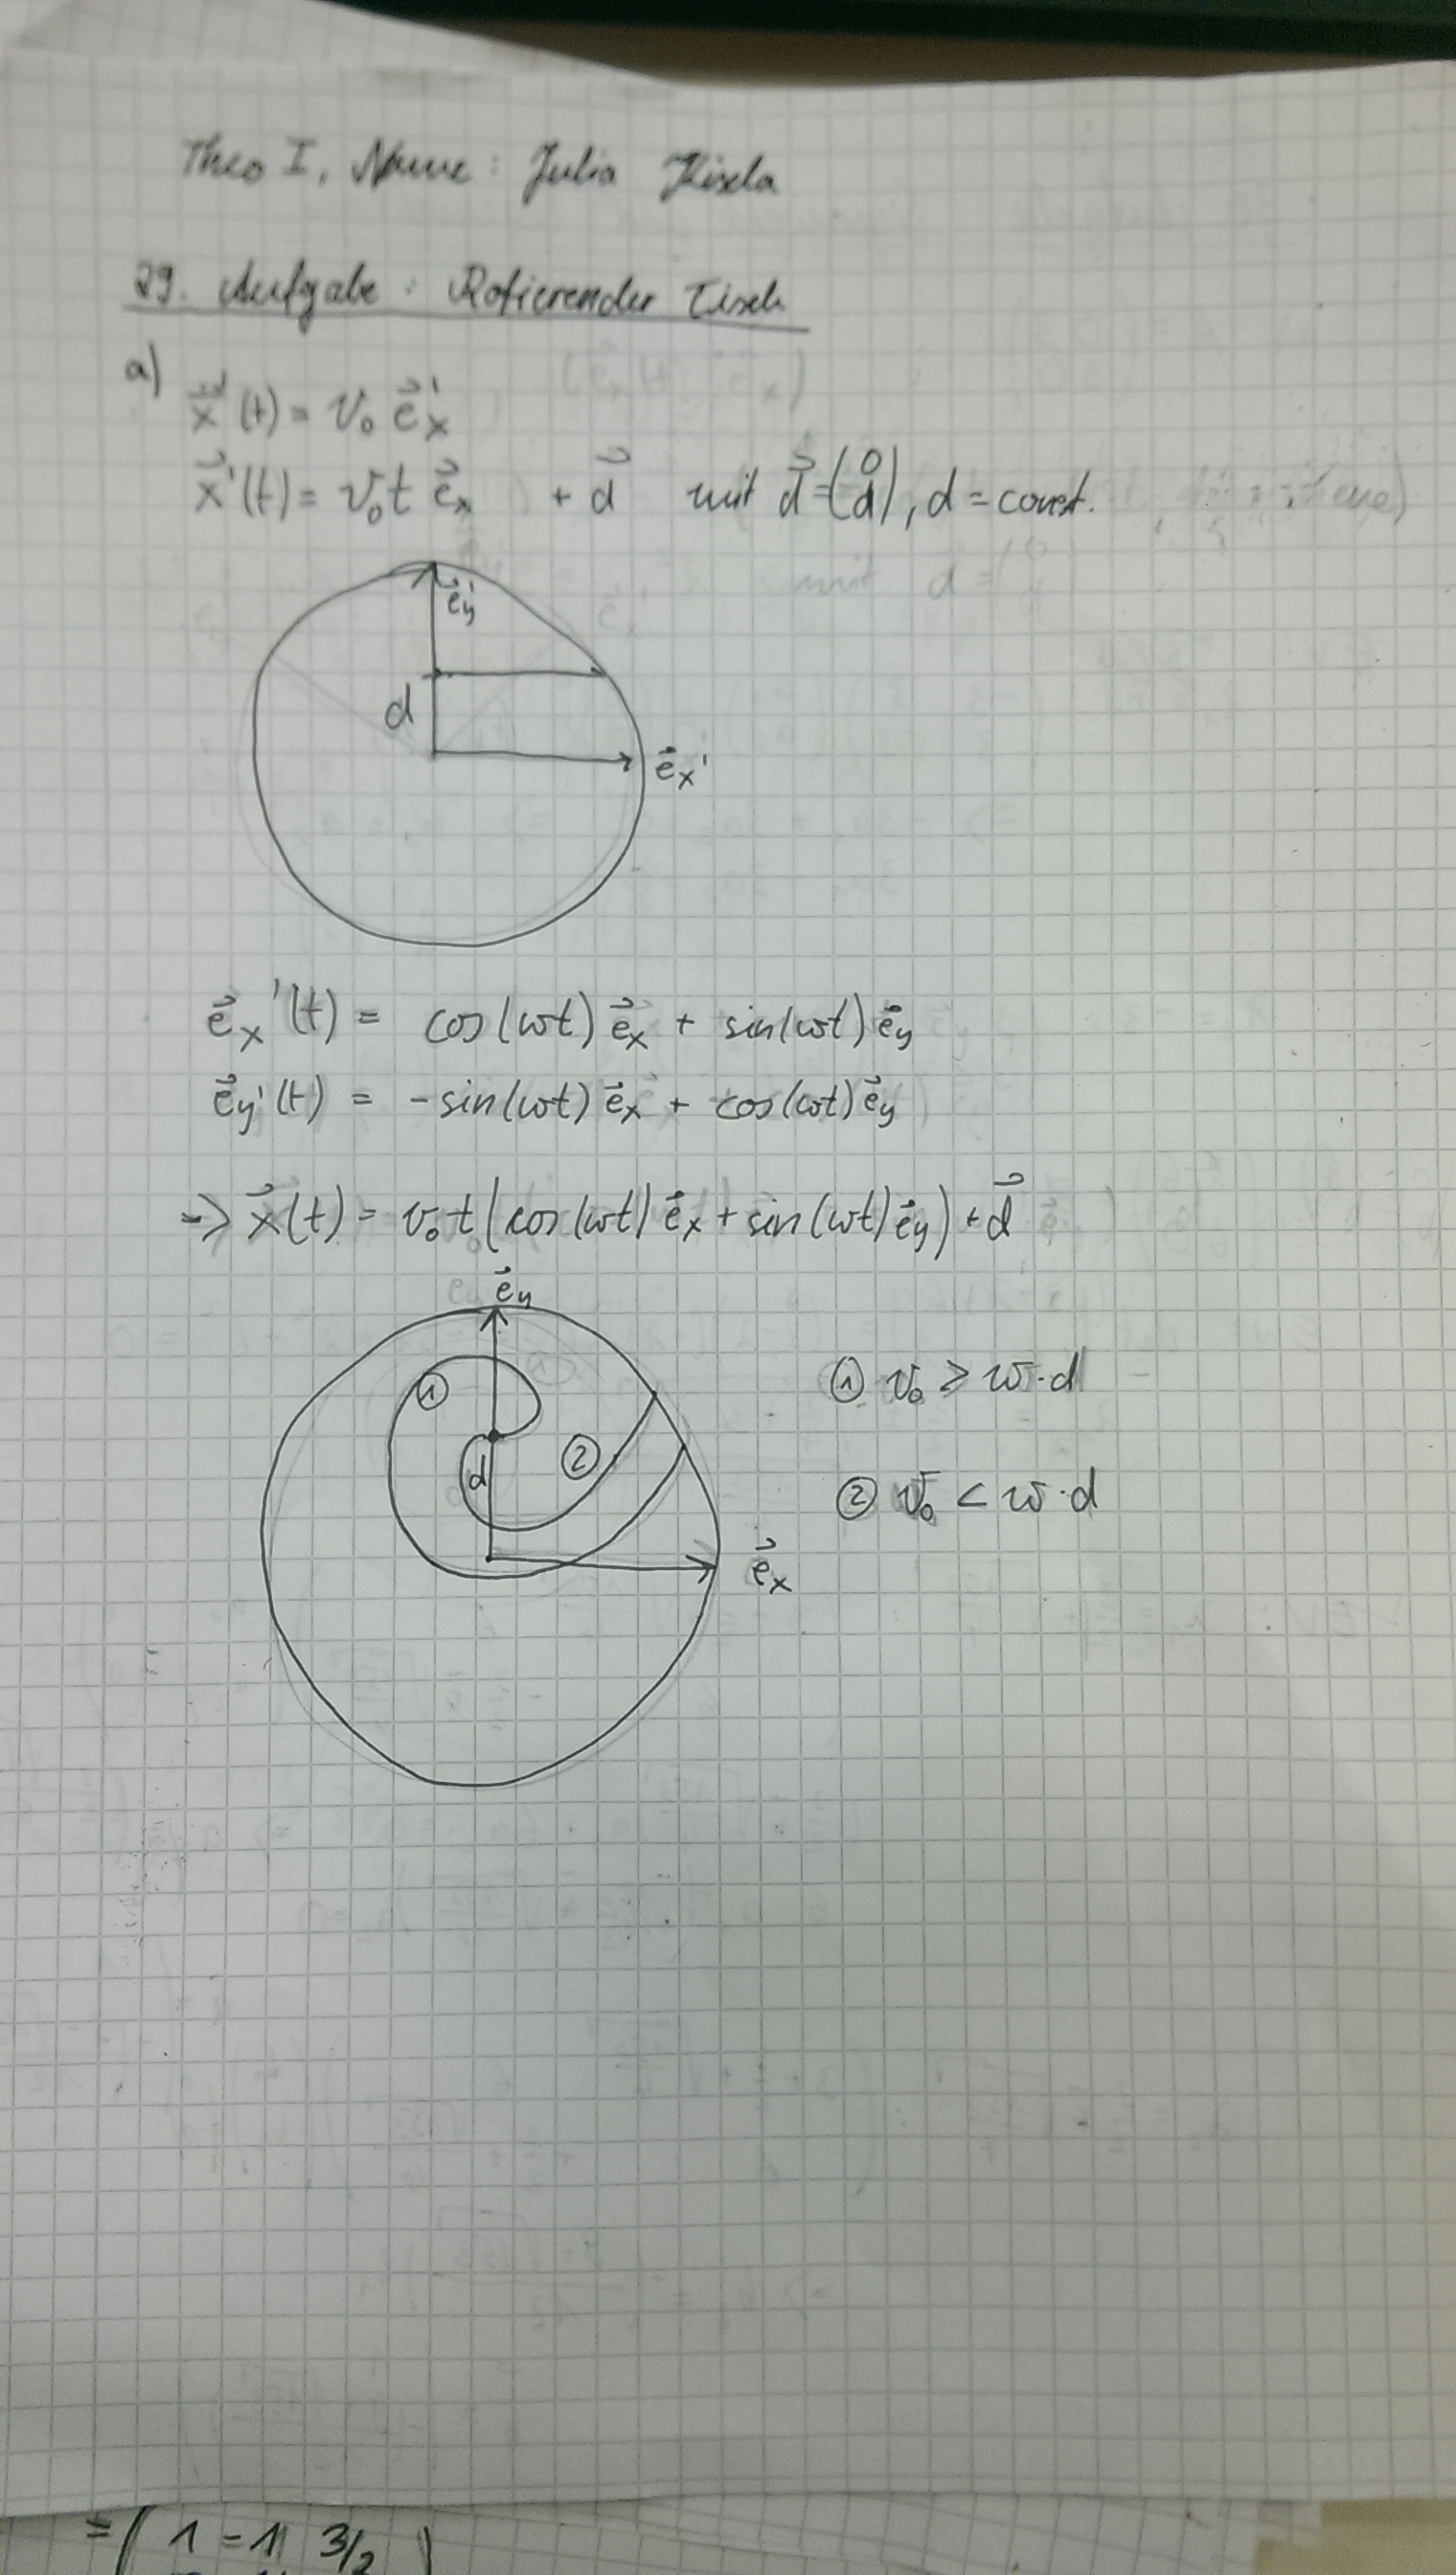 Theo I, Name: Julia Kisela
29. Aufgabe: Rotierender Tisch
a) ẋ⃗'(t) = v₀ e⃗ₓ'
x⃗'(t) = v₀t e⃗ₓ + d⃗ mit d⃗ = (0 d), d = const.
e⃗y'
d
e⃗ₓ'
e⃗ₓ'(t) = cos(ωt) e⃗ₓ + sin(ωt) e⃗y
e⃗y'(t) = -sin(ωt) e⃗ₓ + cos(ωt) e⃗y
=> x⃗(t) = v₀t (cos(ωt) e⃗ₓ + sin(ωt) e⃗y) + d⃗
e⃗y
① v₀ ≥ ω·d
①
②
d
② v₀ < ω·d
e⃗ₓ
= ( 1 = 1 3/2 )